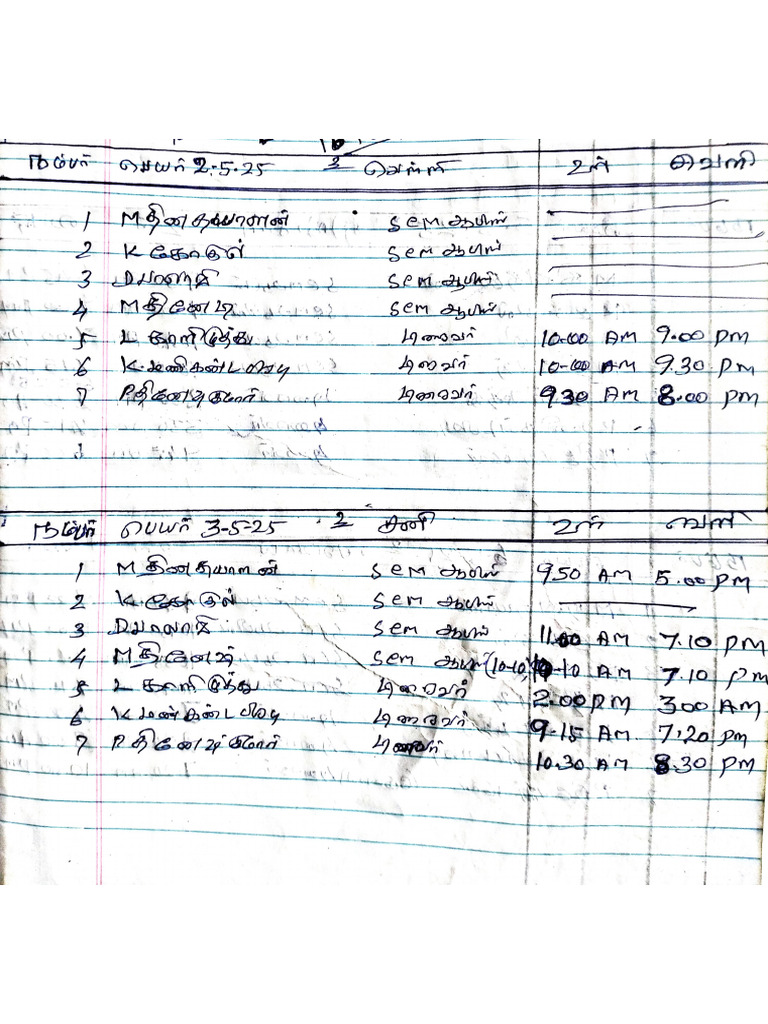 நம்பர் பெயர் 2.5.25 வெள்ளி உள் வெளி
1 M தினதயாளன் SEM ஆபிஸ்
2 K கோகுல் SEM ஆபிஸ்
3 D பாலாஜி SEM ஆபிஸ்
4 M தினேஷ் SEM ஆபிஸ்
5 L காளிமுத்து டிரைவர் 10-00 AM 9.00 PM
6 K மணிகண்ட பிரபு டிரைவர் 10-00 AM 9.30 PM
7 P தினேஷ்குமார் டிரைவர் 9 30 AM 8.00 PM
நம்பர் பெயர் 3-5-25 சனி உள் வெளி
1 M தினதயாளன் SEM ஆபிஸ் 9 50 AM 5.00 PM
2 K கோகுல் SEM ஆபிஸ்
3 D பாலாஜி SEM ஆபிஸ் 11.00 AM 7.10 PM
4 M தினேஷ் SEM ஆபிஸ் (10-10) 10-10 AM 7.10 PM
5 L காளிமுத்து டிரைவர் 2.00 PM 3.00 AM
6 K மணிகண்ட பிரபு டிரைவர் 9-15 AM 7:20 PM
7 P தினேஷ்குமார் டிரைவர் 10.30 AM 8.30 PM